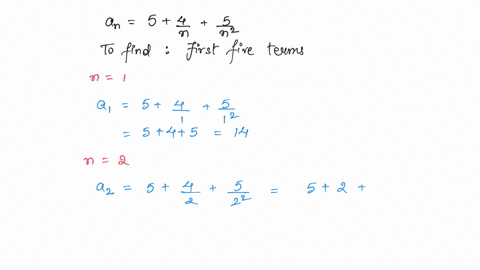 aₙ = 5 + 4/n + 5/n²
To find : First five terms
n = 1
a₁ = 5 + 4/1 + 5/1²
= 5 + 4 + 5 = 14
n = 2
a₂ = 5 + 4/2 + 5/2² = 5 + 2 +